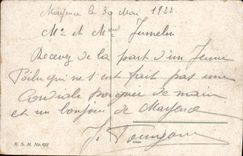 Mayence le 30 Mai 1922
Mr et Mme Jumelin
Recevez de la part d'un Jeune
Poilu qui ne s'en fait pas une
Cordiale poignée de main
et un bonjour de Mayence
J.